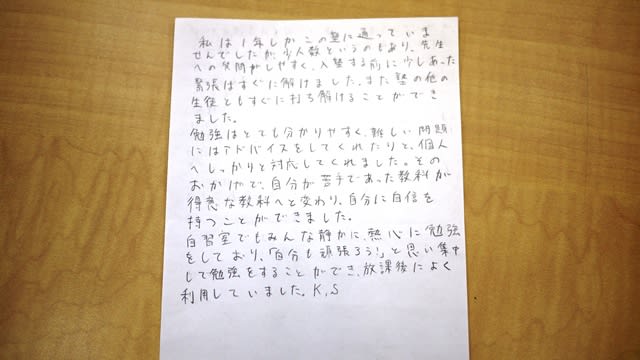 私は1年しかこの塾に通っていま
せんでしたが、少人数というのもあり、先生
への質問がしやすく、入塾する前に少しあった
緊張はすぐに解けました。また塾の他の
生徒ともすぐに打ち解けることができ
ました。
勉強はとても分かりやすく、難しい問題
にはアドバイスをしてくれたりと、個人
へしっかりと対応してくれました。その
おかげで、自分が苦手であった教科が
得意な教科へと変わり、自分に自信を
持つことができました。
自習室でもみんな静かに、熱心に勉強
をしており、「自分も頑張ろう!」と思い集中
して勉強をすることができ、放課後によく
利用していました。K,S